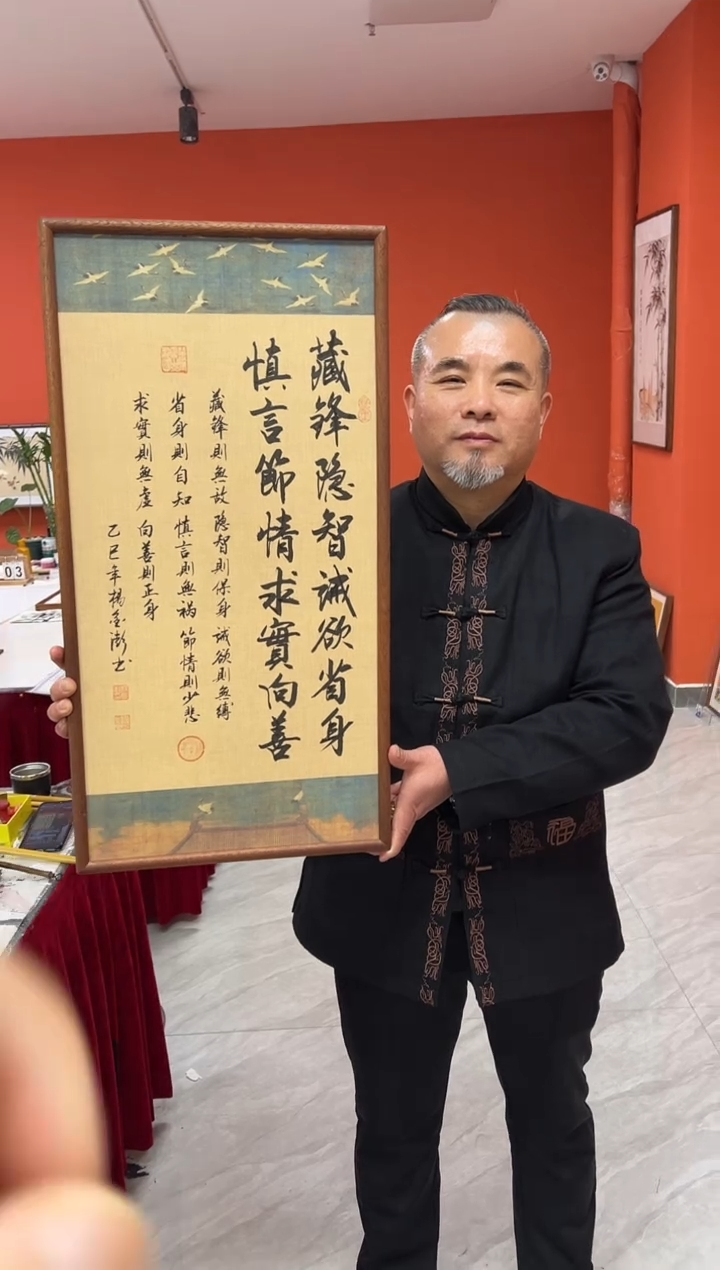 藏鋒隐智诫欲省身
慎言節情求實向善
藏鋒則無敌 隐智則保身 诫欲則無縛
省身則自知 慎言則無祸 節情則少悲
求實則無虚 向善則正身
乙巳年楊金澎书
福
03